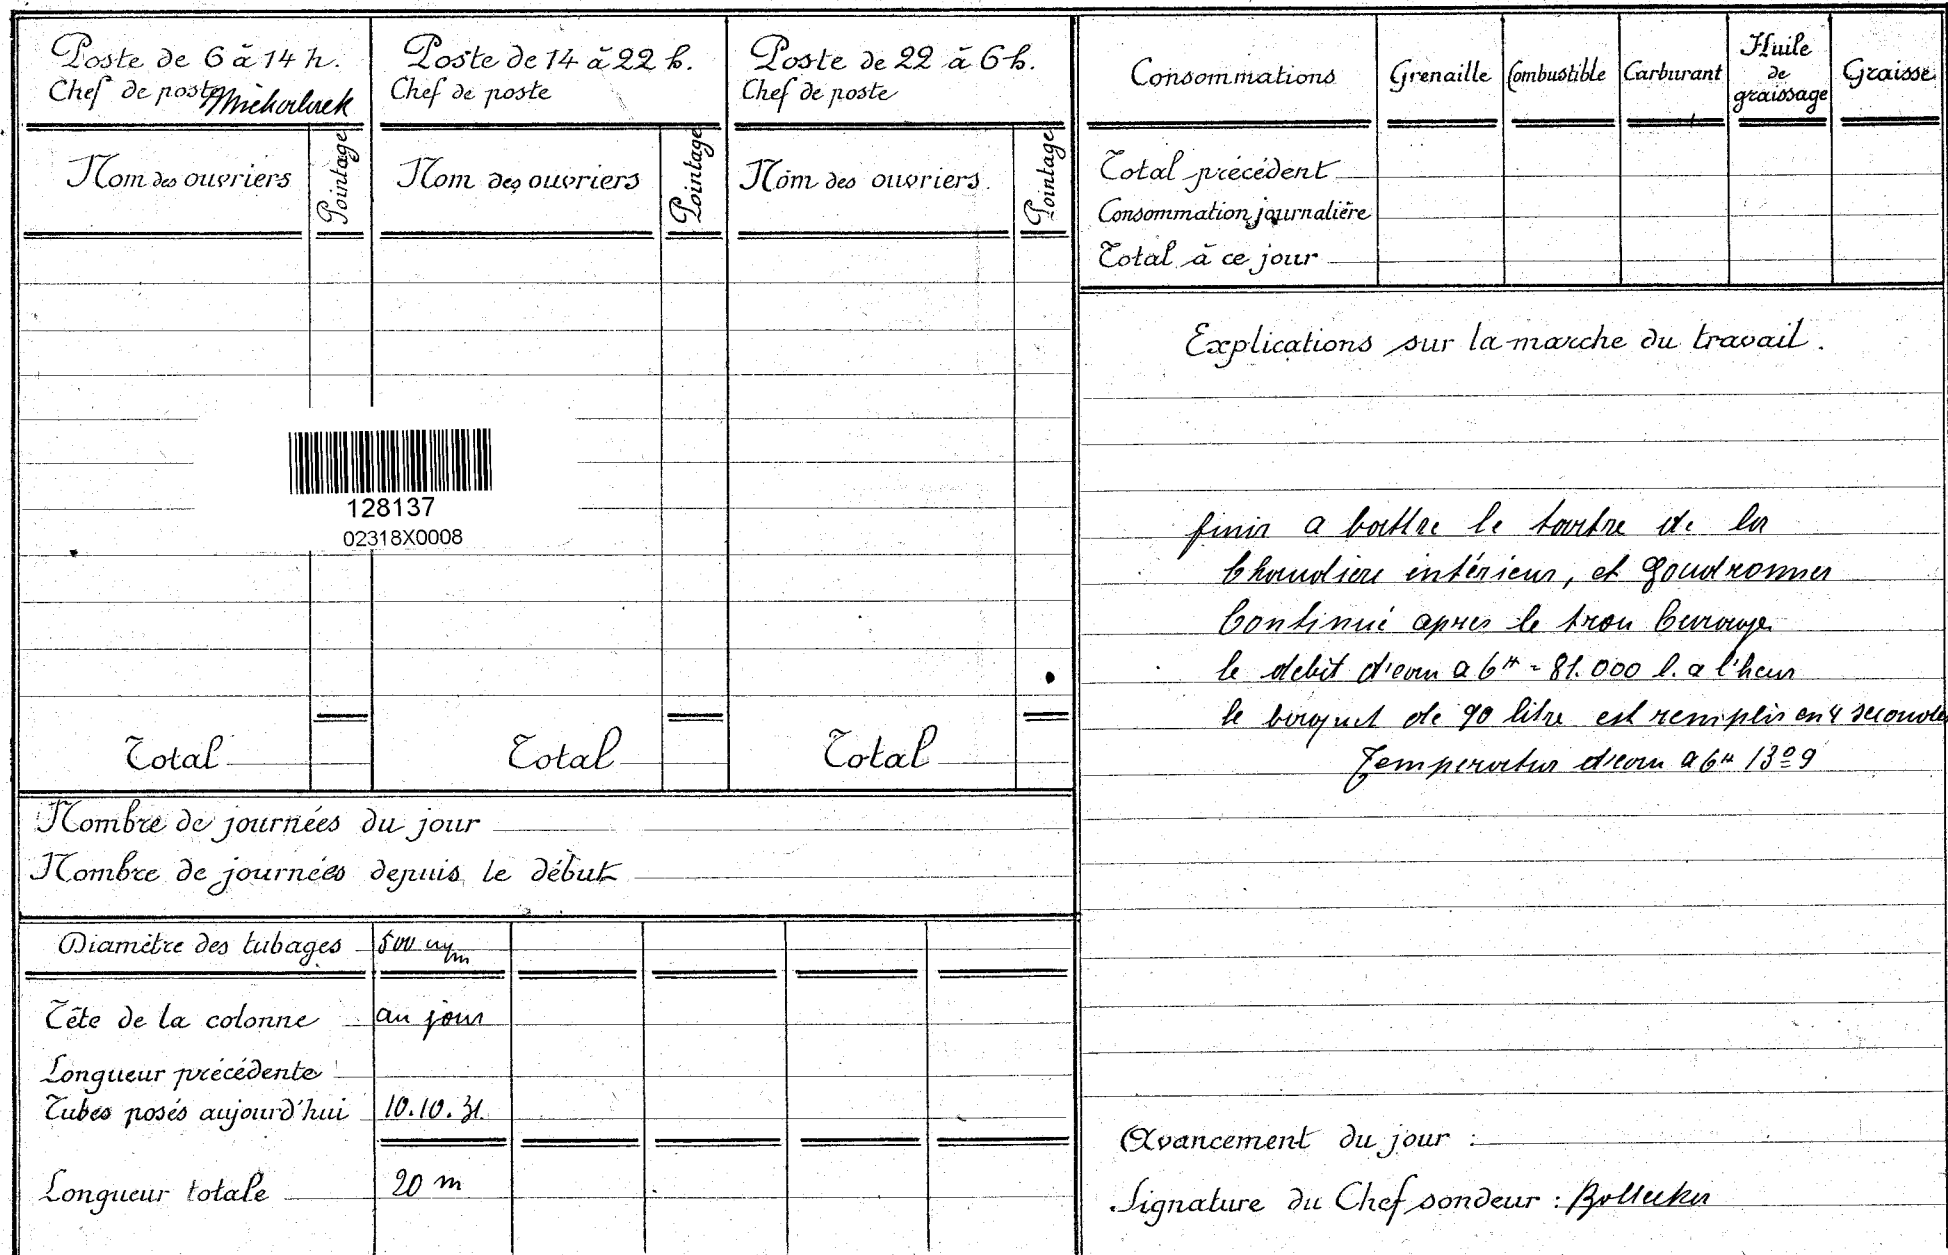 Poste de 6 à 14 h.
Chef de poste
Nom des ouvriers
Pointage
Total
Poste de 14 à 22 h.
Chef de poste
Nom des ouvriers
Pointage
Total
Poste de 22 à 6 h.
Chef de poste
Nom des ouvriers
Pointage
Total
128137
02318X0008
Nombre de journées du jour
Nombre de journées depuis le début
Diamètre des tubages 500 m/m
Tête de la colonne au jour
Longueur précédente
Tubes posés aujourd'hui 10.10.31.
Longueur totale 20 m
Consommations Grenaille Combustible Carburant Huile de graissage Graisse
Total précédent
Consommation journalière
Total à ce jour
Explications sur la marche du travail.
finir a battre le tartre de la
Chaudiere intérieur, et Goudronner
Continué apres le trou Curage
le debit d'eau a 6H = 81.000 l. a l'heur
le baquet de 90 litre est remplis en 4 secondes
Temperatur d'eau a 6H 13º9
Avancement du jour :
Signature du Chef sondeur :